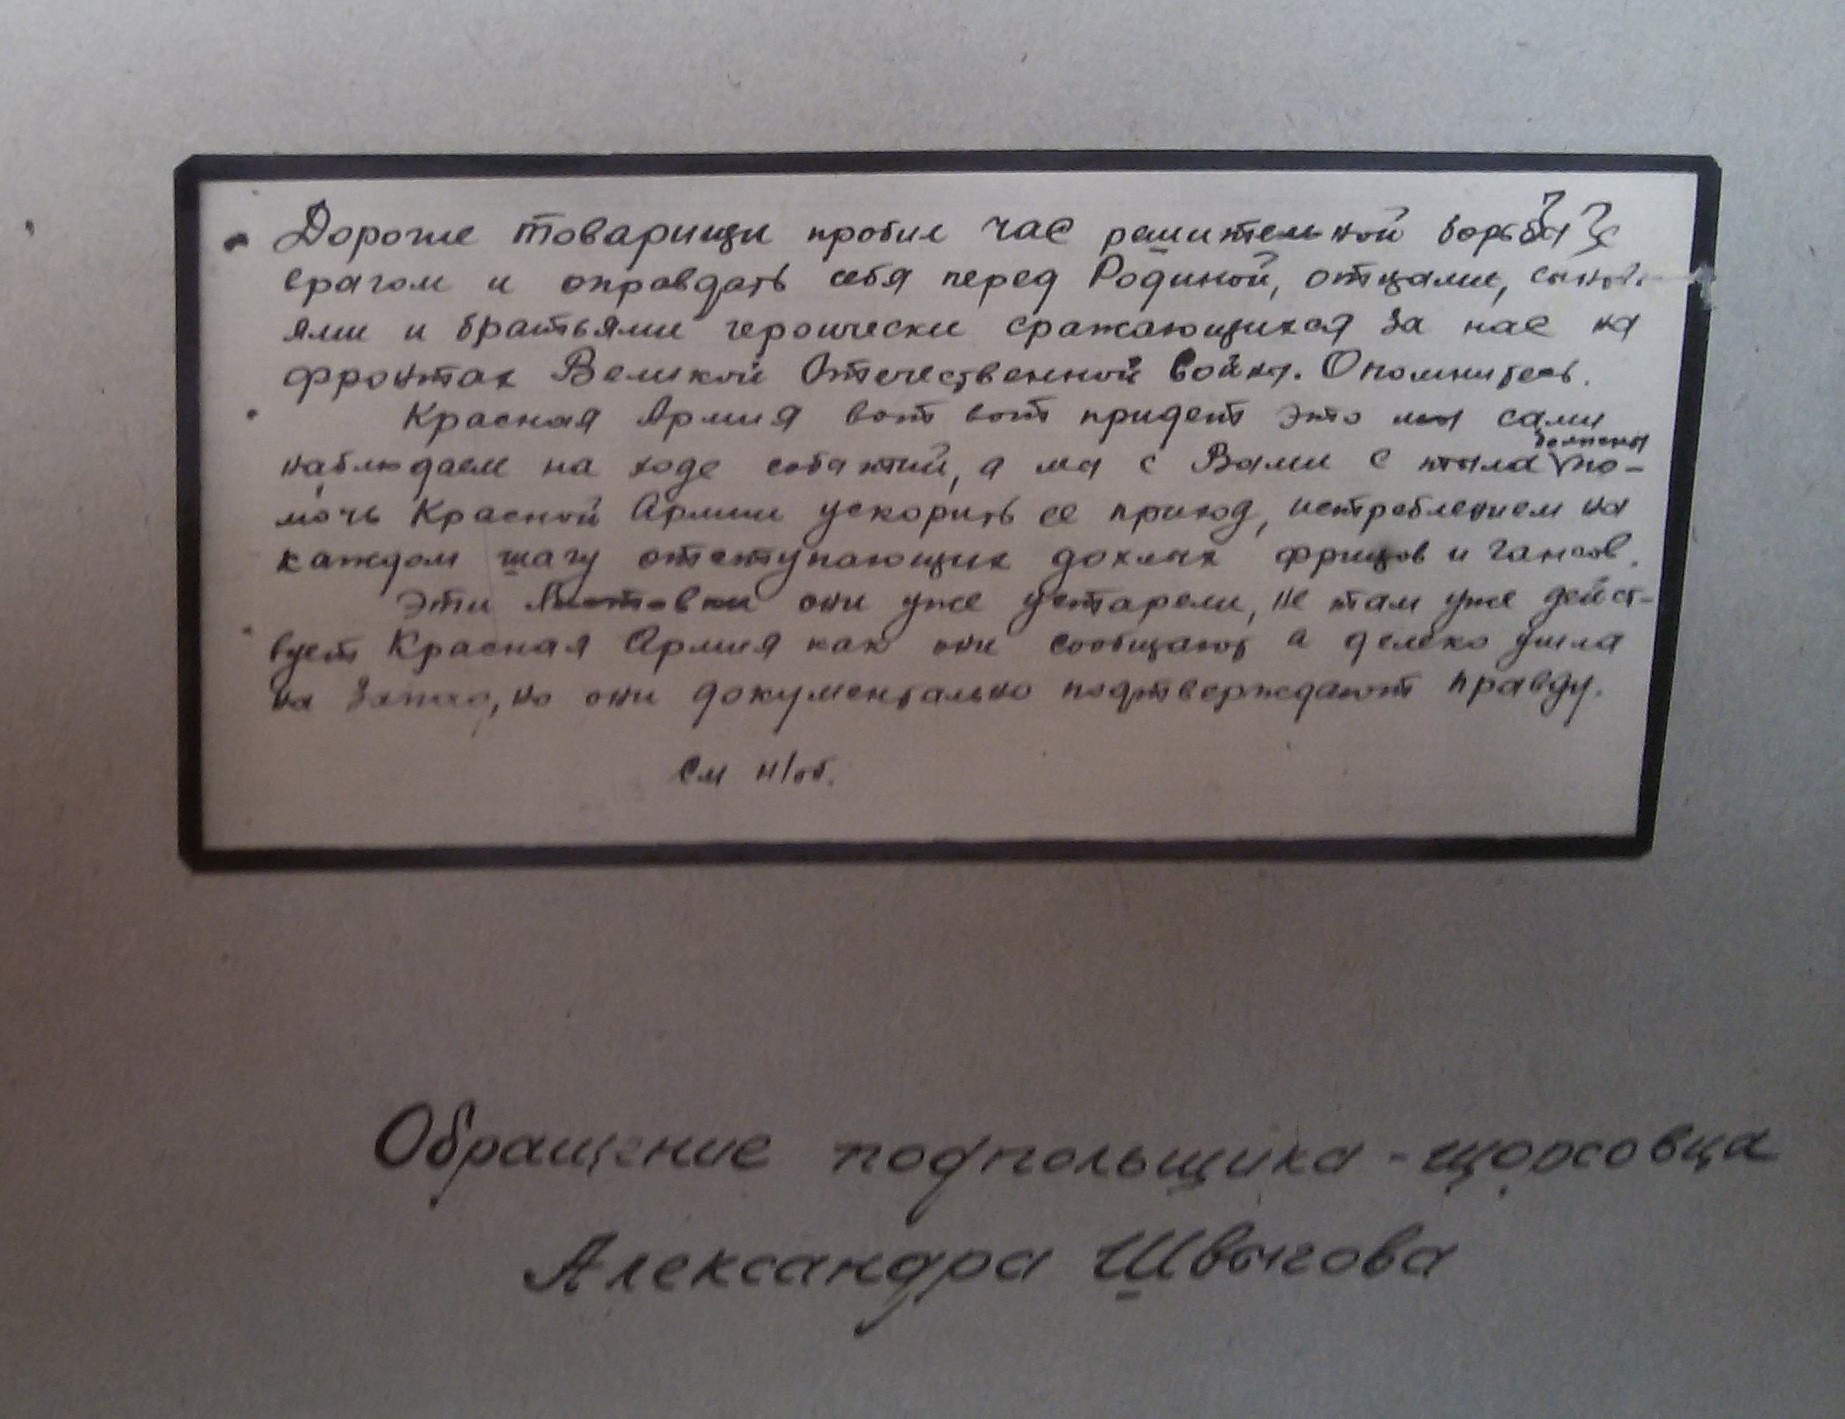 Дорогие товарищи пробил час решительной борьбы с
врагом и оправдать себя перед Родиной, отцами, сынов-
ями и братьями героически сражающихся за нас на
фронтах Великой Отечественной войны. Опомнитесь.
Красная Армия вот вот придет это мы сами
наблюдаем на ходе событий, а мы с Вами с тыла должны по-
мочь Красной Армии ускорить ее приход, истреблением на
каждом шагу отступающих дохлых фрицов и гансов.
Эти Листовки они уже устарели, не там уже дейст-
вует Красная Армия как они сообщают а делеко ушла
на Запад, но они документально подтверждают правду.
См н/об.
Обращение подпольщика-щорсовца
Александра Швыгова